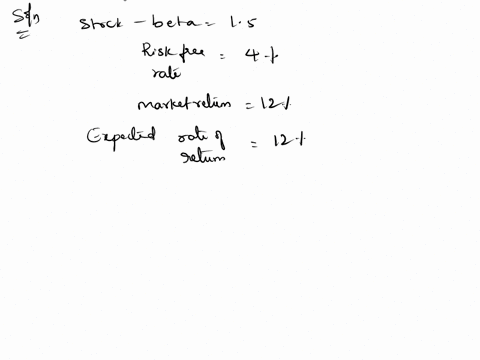 Sol'n
Stock - beta = 1.5
Risk free rate = 4%
market return = 12%
Expected rate of return = 12%